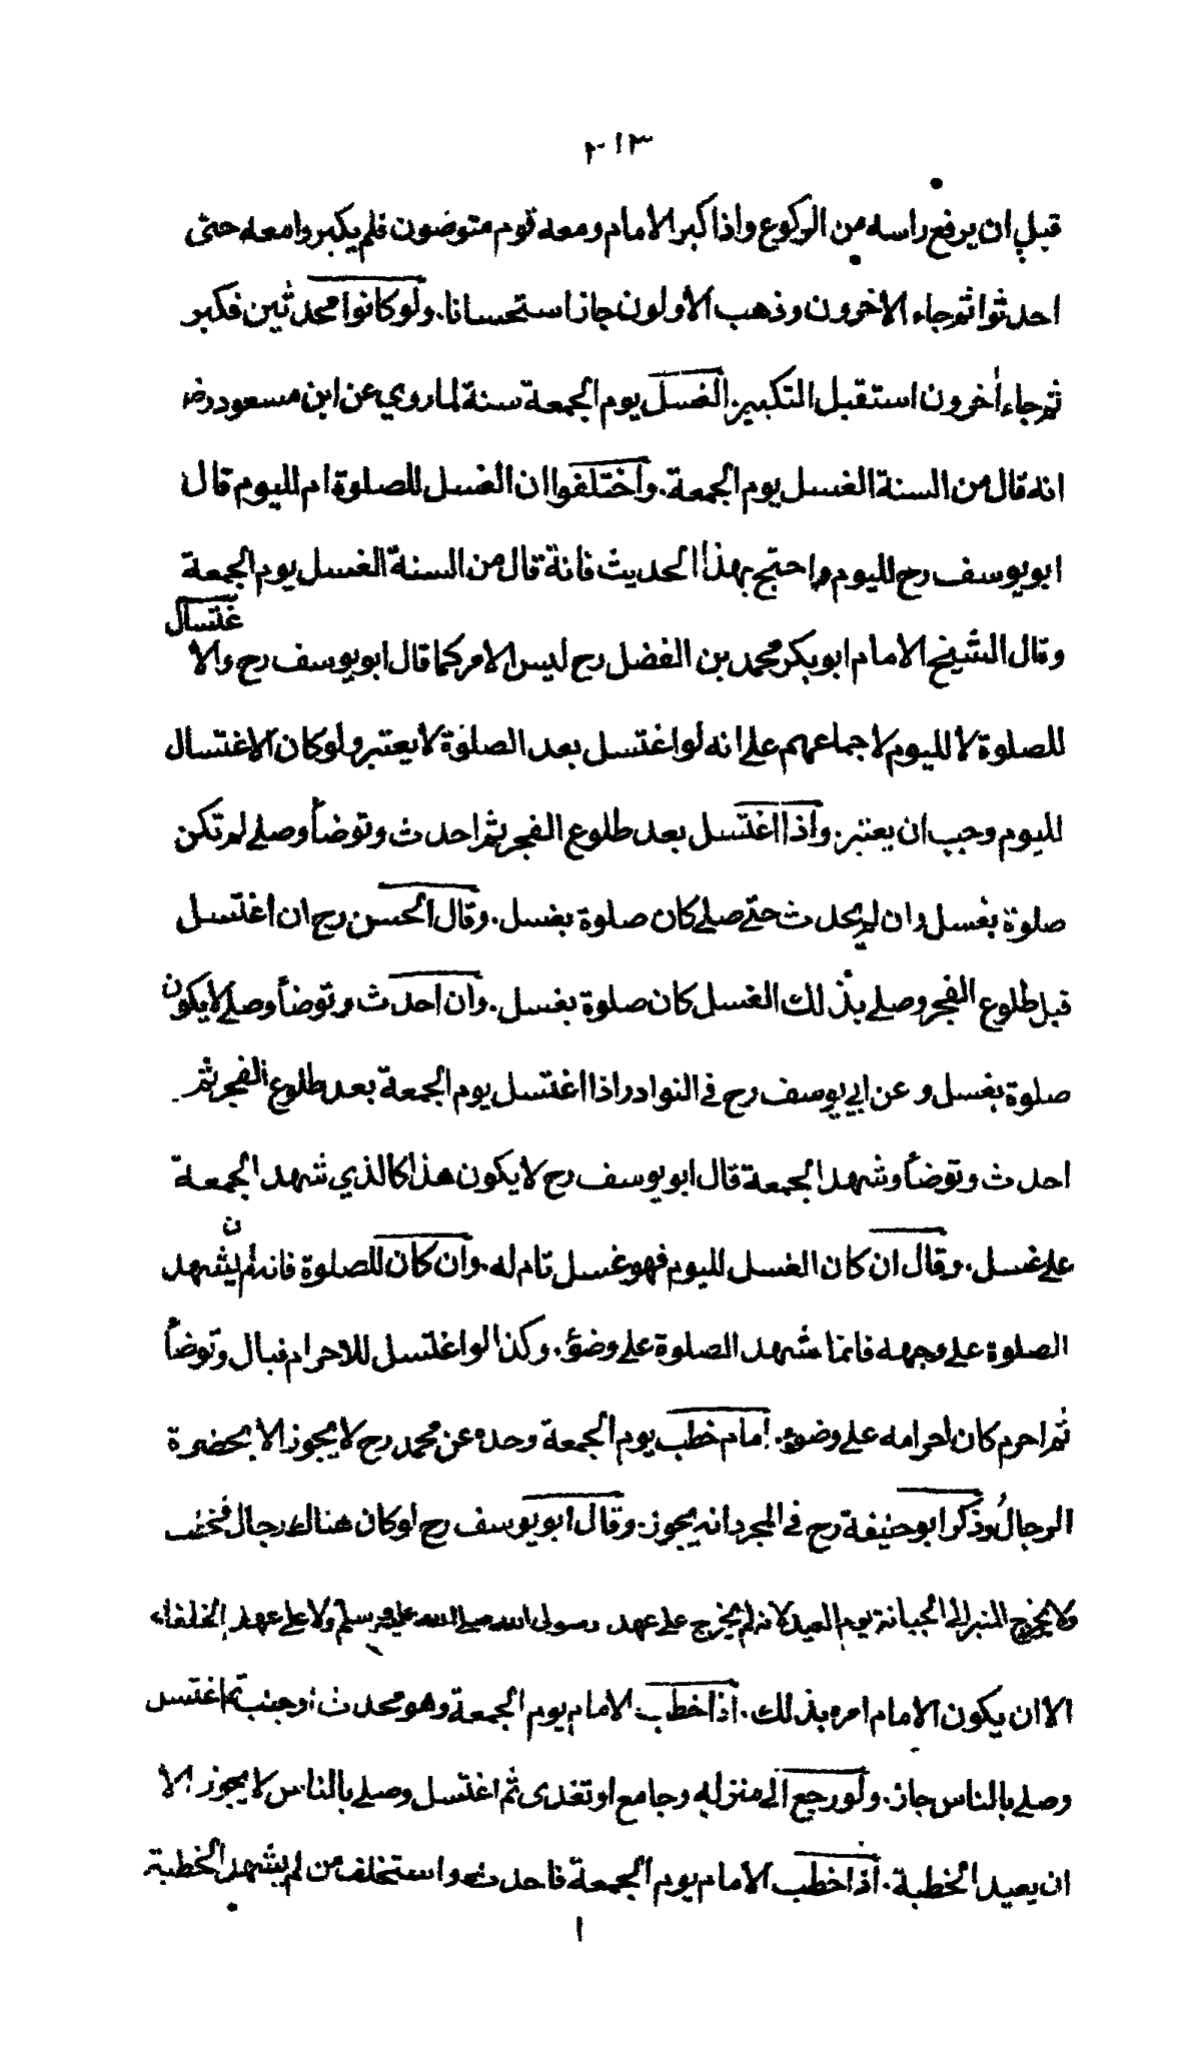 ٢١٣
قبل ان يرفع راسه من الركوع واذا كبر الامام ومعه قوم متوضون فلم يكبروا معه حتى
احدثوا ثم جاء الاخرون وذهب الأولون جاز استحسانا. ولو كانوا محدثين فكبر
ثم جاء أخرون استقبل التكبير. الغسل يوم الجمعة سنة لما روي عن ابن مسعود رض
انه قال من السنة الغسل يوم الجمعة. واختلفوا ان الغسل للصلوة ام لليوم قال
ابو يوسف رح لليوم واحتج بهذا الحديث فانه قال من السنة الغسل يوم الجمعة
وقال الشيخ الامام ابو بكر محمد بن الفضل رح ليس الامر كما قال ابو يوسف رح والا غتسال
للصلوة لا لليوم لاجماعهم على انه لو اغتسل بعد الصلوة لا يعتبر ولو كان الاغتسال
لليوم وجب ان يعتبر. واذا اغتسل بعد طلوع الفجر ثم احدث وتوضأ وصلے لم تكن
صلوة بغسل وان لم يحدث حتے صلے كان صلوة بغسل. وقال الحسن رح ان اغتسل
قبل طلوع الفجر وصلے بذلك الغسل كان صلوة بغسل. وان احدث وتوضأ وصلے لا يكون
صلوة بغسل وعن ابي يوسف رح في النوادر اذا اغتسل يوم الجمعة بعد طلوع الفجر ثم
احدث وتوضأ وشهد الجمعة قال ابو يوسف رح لا يكون هذا كالذي شهد الجمعة
علے غسل. وقال ان كان الغسل لليوم فهو غسل تام له. وان كان للصلوة فانه لم يشهد ن
الصلوة علے وجهه فانما شهد الصلوة علے وضؤ. وكذا لو اغتسل للاحرام فبال وتوضأ
ثم احرم كان احرامه علے وضوء. امام خطب يوم الجمعة وحده عن محمد رح لا يجوز الا بحضرة
الرجال وذكر ابو حنيفة رح في المجرد انه يجوز. وقال ابو يوسف رح لو كان هناك رجال فخطب
ولا يخرج المنبر الى الجبانة يوم العيد لانه لم يخرج علے عهد رسول الله صلے الله عليه وسلم ولا علے عهد الخلفاء
الا ان يكون الامام امره بذلك. اذا خطب الامام يوم الجمعة وهو محدث او جنب ثم اغتسل
وصلے بالناس جاز. ولو رجع الے منزله وجامع او تغدى ثم اغتسل وصلے بالناس لا يجوز الا
ان يعيد الخطبة. اذا خطب الامام يوم الجمعة فاحدث واستخلف من لم يشهد الخطبة
ا